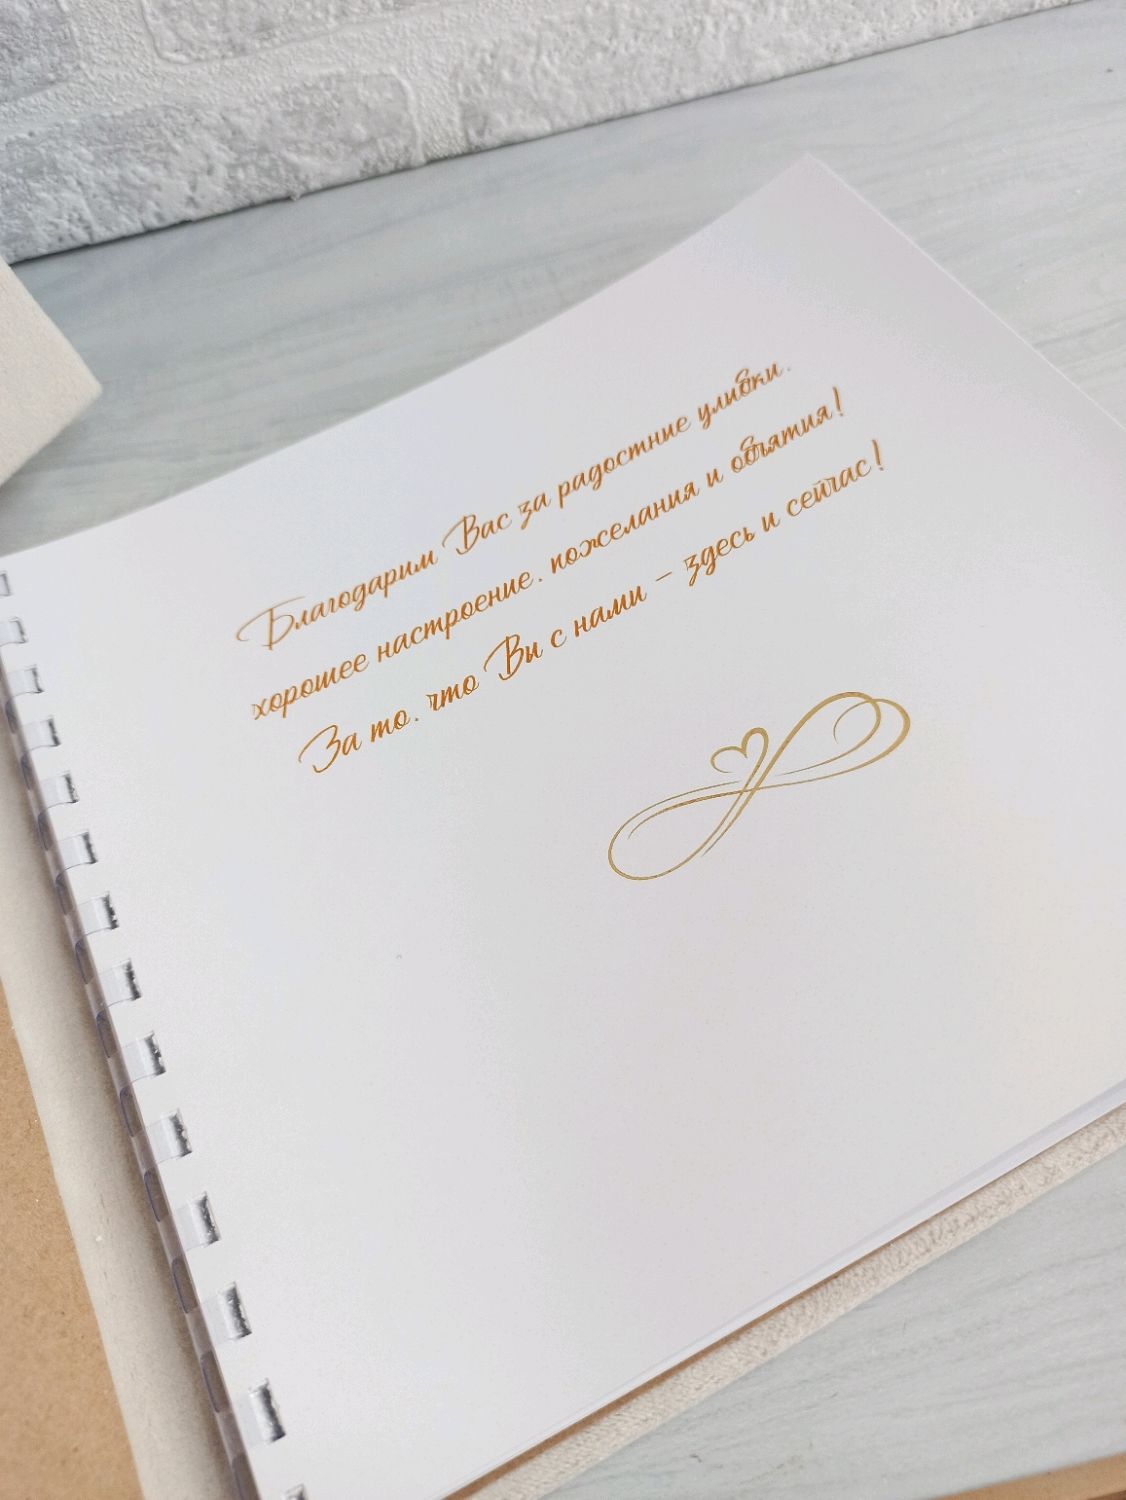 Благодарим Вас за радостные улыбки,
хорошее настроение, пожелания и объятия!
За то, что Вы с нами – здесь и сейчас!